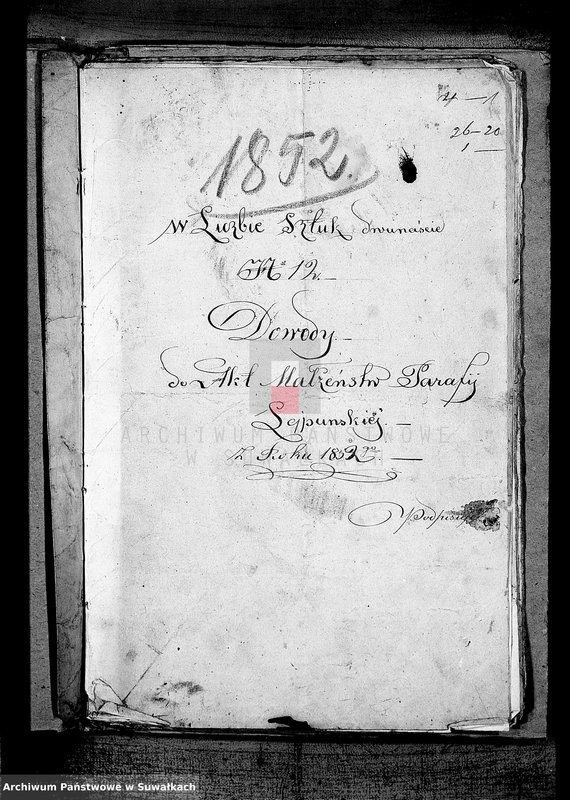 4 — 1
26 — 20
1 —
1852.
W Liczbie Sztuk dwunaście
No 12.
Dowody
do Akt Małżeństw Parafij
Lejpunskiéj. —
z Roku 1852go —
ARCHIWUM PAŃSTWOWE
W
Archiwum Państwowe w Suwałkach